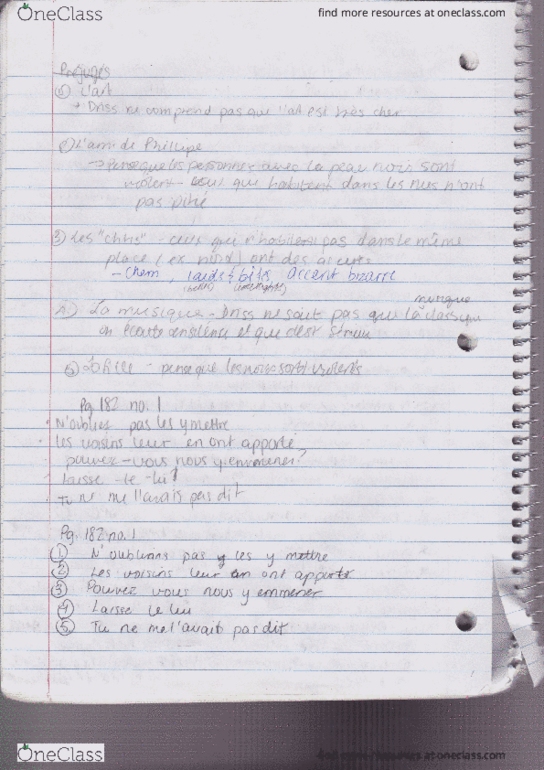 OneClass
find more resources at oneclass.com
Préjugés
L'art
→ Driss ne comprend pas que l'art est très cher
L'ami de Phillipe
→ Pense que les personnes avec la peau noir sont
violent - ceux que habitent dans les rues n'ont
pas pitié
3) Les "chtis" - ceux qui n'habitent pas dans le même
place (ex nord) ont des accents
- chom, laids + bêtes, accent bizarre
musique
La musique - Driss ne sait pas que la classique
on écoute en silence et que c'est
5) - pense que les noirs sont violents
Pg. 182 no. 1
· N'oublies pas les y mettre
· Les voisins leur en ont apporté
pouvez-vous nous y emmener?
- Laisse-le-lui
- Tu ne me l'avais pas dit
Pg. 182 no. 1
1 N'oublions pas y les y mettre
2 Les voisins leur en ont apporté
3 Pouvez vous nous y emmener
4 Laisse le lui
5 Tu ne me l'avait pas dit
OneClass
find more resources at oneclass.com